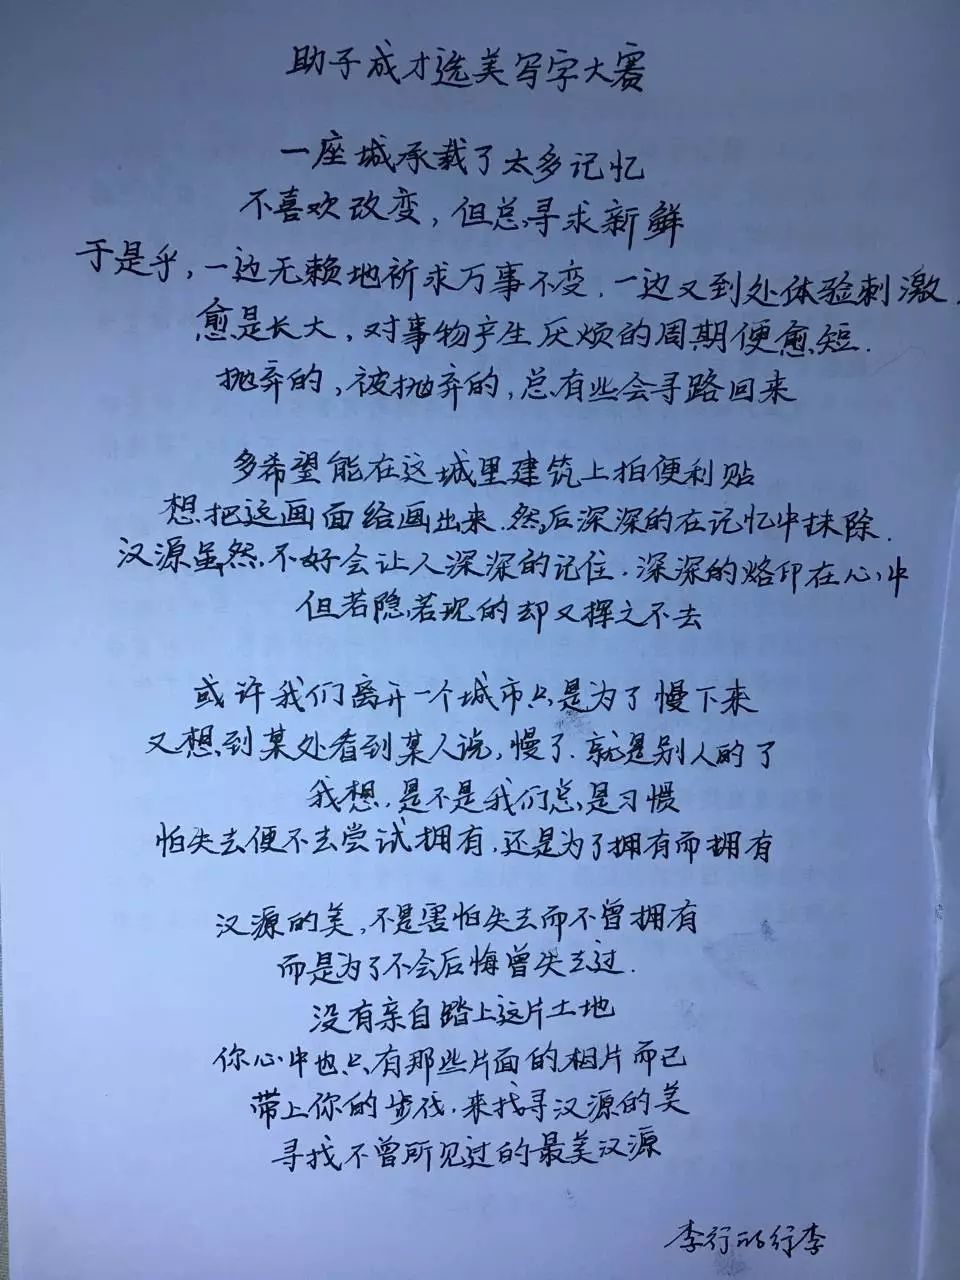 助子成才选美写字大赛
一座城承载了太多记忆
不喜欢改变，但总寻求新鲜
于是乎，一边无赖地祈求万事不变，一边又到处体验刺激，
愈是长大，对事物产生厌烦的周期便愈短.
抛弃的，被抛弃的，总有些会寻路回来
多希望能在这城里建筑上拍便利贴
想把这画面给画出来.然后深深的在记忆中抹除.
汉源虽然不好会让人深深的记住.深深的烙印在心中
但若隐若现的却又挥之不去
或许我们离开一个城市只是为了慢下来
又想到某处看到某人说，慢了.就是别人的了
我想，是不是我们总是习惯
怕失去便不去尝试拥有，还是为了拥有而拥有
汉源的美，不是害怕失去而不曾拥有
而是为了不会后悔曾失去过.
没有亲自踏上这片土地
你心中也只有那些片面的相片而已
带上你的步伐.来找寻汉源的美
寻找不曾所见过的最美汉源
李行的行李